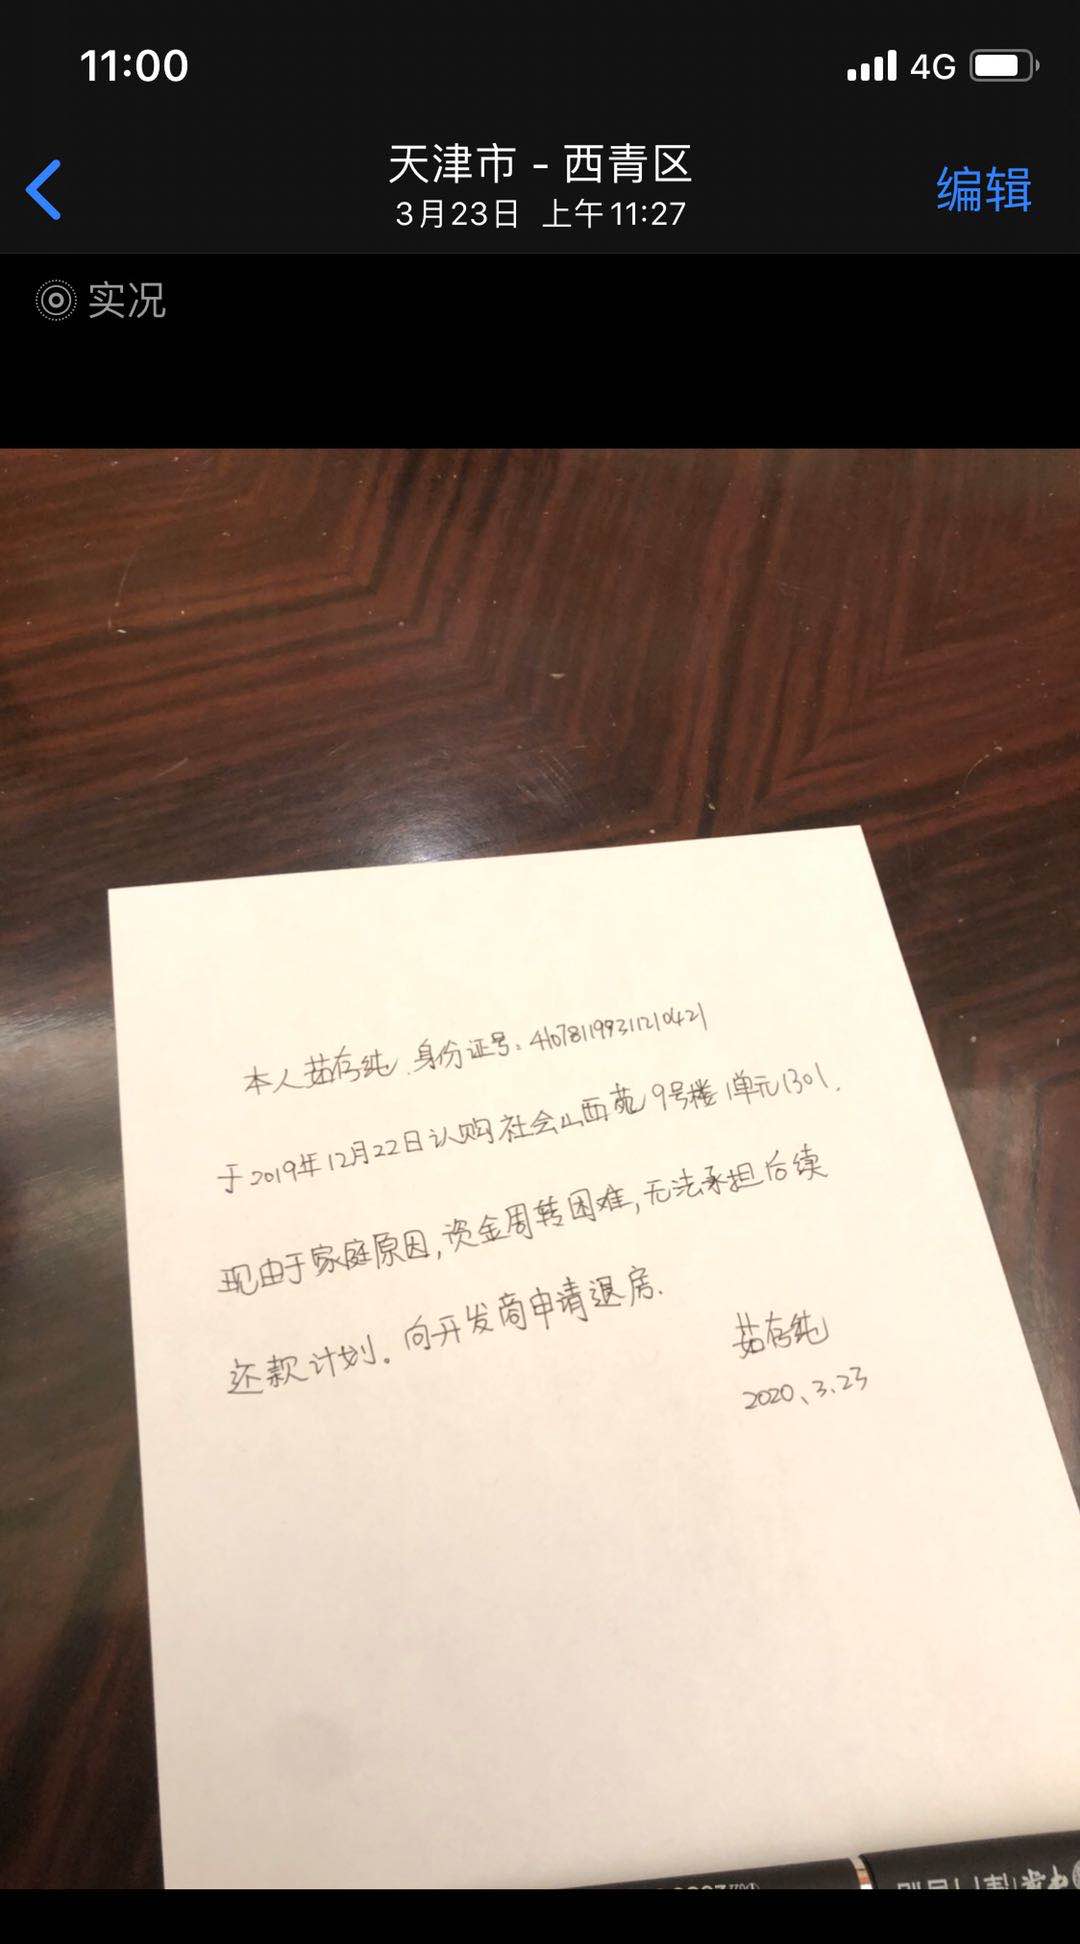 11:00
4G
天津市 - 西青区
3月23日 上午11:27
编辑
实况
本人茹存纯.身份证号:410781199311210421
于2019年12月22日认购社会山西苑9号楼1单元1301.
现由于家庭原因,资金周转困难,无法承担后续
还款计划。向开发商申请退房.
茹存纯
2020、3.23